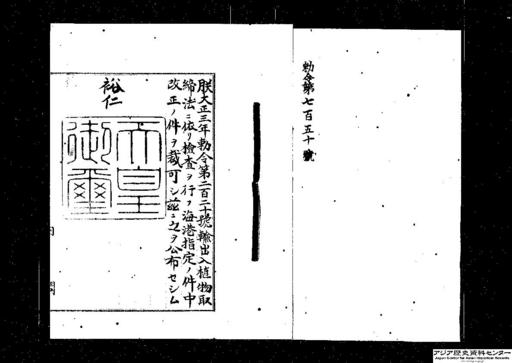 勅令第七百五十號
朕大正三年勅令第二百二十號輸出入植物取
締法ニ依リ檢査ヲ行フ海港指定ノ件中
改正ノ件ヲ裁可シ茲ニ之ヲ公布セシム
裕仁
天皇
御璽
アジア歴史資料センター
Japan Center for Asian Historical Records